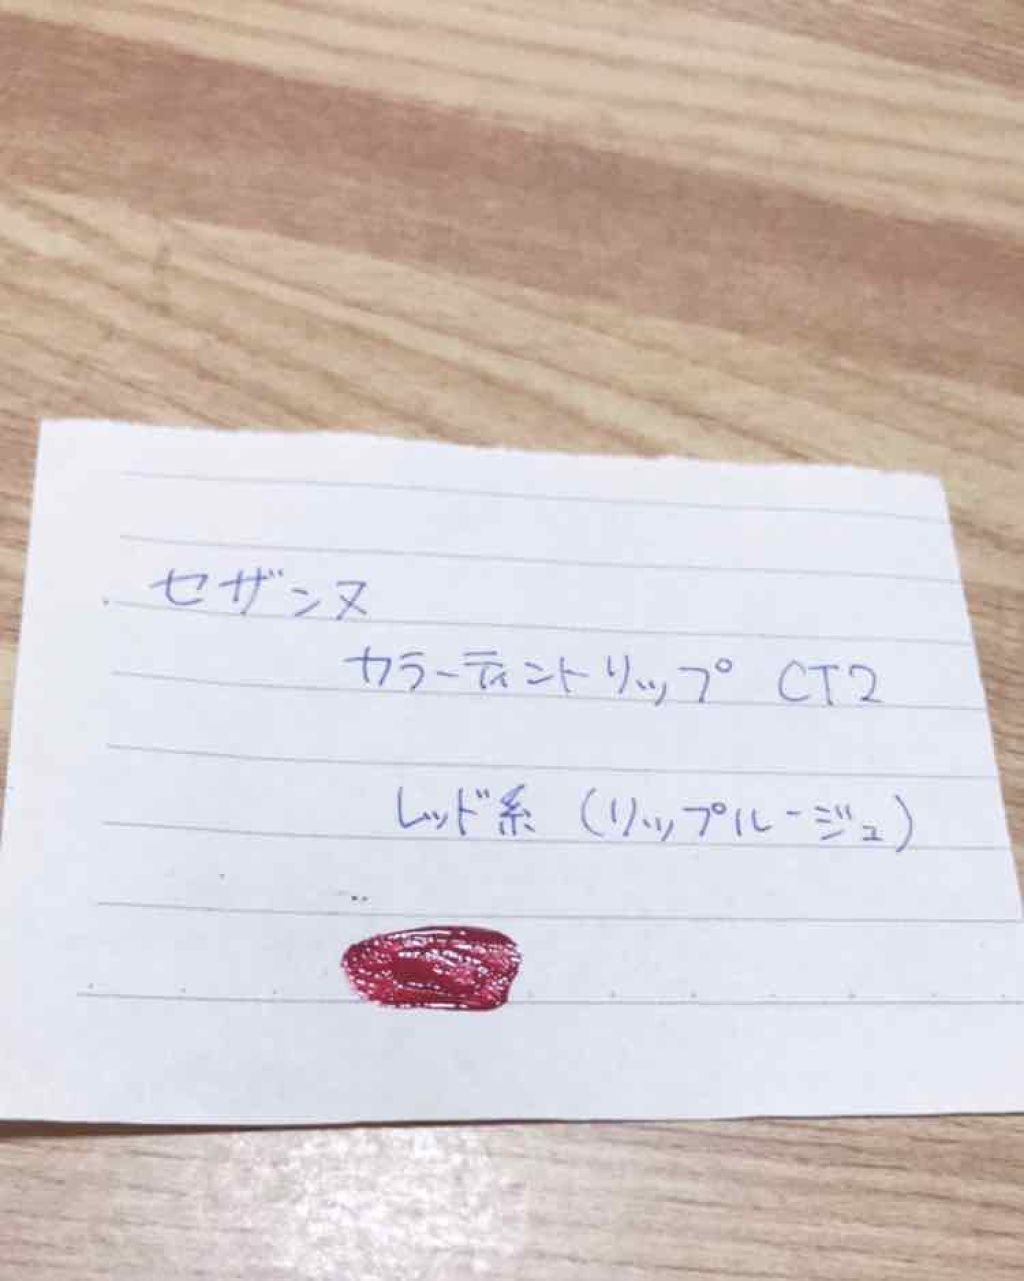 セザンヌ
カラーティントリップ CT2
レッド系 (リップルージュ)